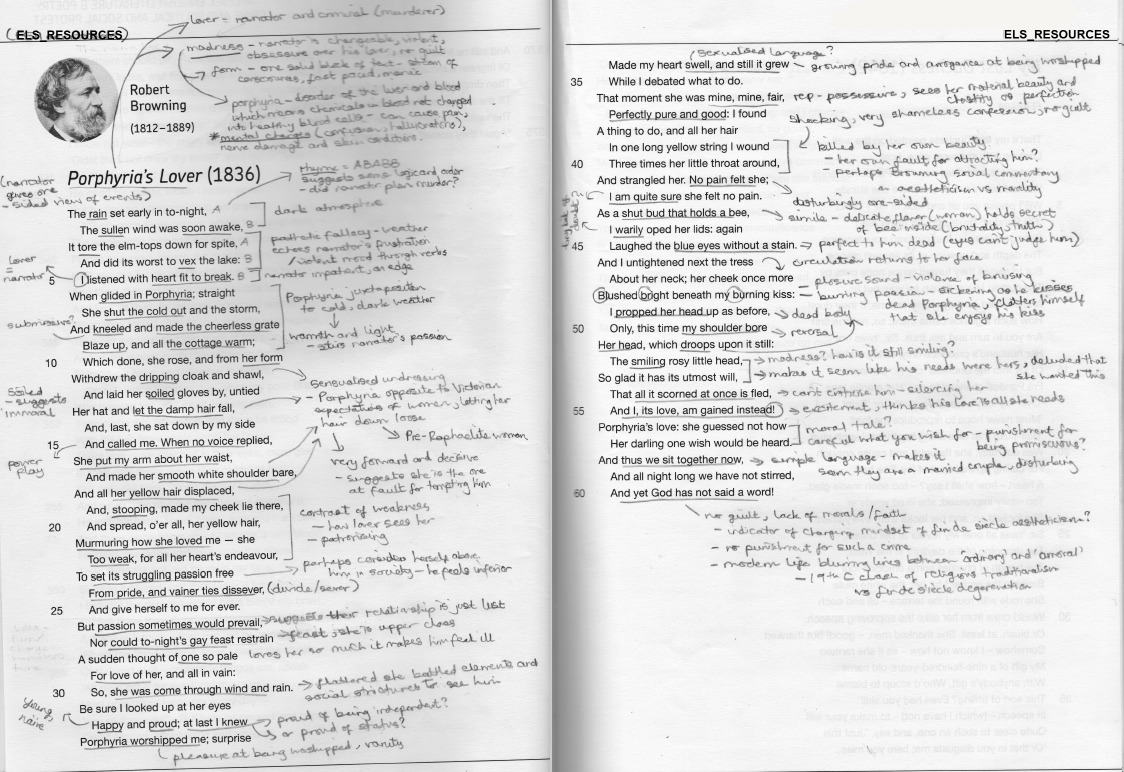 (ELS_RESOURCES)
lover = narrator and criminal (murderer)
madness - narrator is changeable, violent,
obsessive over his lover, no guilt
form - one solid block of text - stream of
consciousness, fast paced, manic
Robert
Browning
(1812–1889)
porphyria - disorder of the liver and blood
which means chemicals in blood not changed
into healthy blood cells - can cause pain,
*mental changes (confusion, hallucinations),
nerve damage and skin conditions.
Porphyria's Lover (1836)
rhyme = ABABB
suggests sense logic and order
- did narrator plan murder?
(narrator
gives one
- sided view of events)
The rain set early in to-night, A
The sullen wind was soon awake, B
dark atmosphere
It tore the elm-tops down for spite, A
And did its worst to vex the lake: B
pathetic fallacy - weather
echoes narrator's frustration
/violent mood through verbs
lover
=
narrator
5 I listened with heart fit to break. B
narrator impatient, on edge
When glided in Porphyria; straight
She shut the cold out and the storm,
Porphyria juxtaposition
to cold, dark weather
submissive?
And kneeled and made the cheerless grate
Blaze up, and all the cottage warm;
warmth and light
- stirs narrator's passion
10 Which done, she rose, and from her form
Withdrew the dripping cloak and shawl,
And laid her soiled gloves by, untied
Soiled
- suggests
immoral
Her hat and let the damp hair fall,
sensualised undressing
- Porphyria opposite to Victorian
expectations of women, letting her
hair down loose
Pre-Raphaelite woman
And, last, she sat down by my side
15 And called me. When no voice replied,
power
play
She put my arm about her waist,
And made her smooth white shoulder bare,
very forward and decisive
- suggests she is the one
at fault for tempting him
And all her yellow hair displaced,
And, stooping, made my cheek lie there,
20 And spread, o'er all, her yellow hair,
Murmuring how she loved me — she
Too weak, for all her heart's endeavour,
contrast of weakness
- how lover sees her
- patronising
To set its struggling passion free
From pride, and vainer ties dissever, (divide/sever)
perhaps considers herself above
him in society - he feels inferior
25 And give herself to me for ever.
But passion sometimes would prevail,
suggests their relationship is just lust
Nor could to-night's gay feast restrain
feast, she is upper class
A sudden thought of one so pale
loves her so much it makes him feel ill
For love of her, and all in vain:
30 So, she was come through wind and rain.
flattered she battled elements and
social structures to see him
Be sure I looked up at her eyes
young,
naive
Happy and proud; at last I knew
proud of being independent?
or proud of status?
Porphyria worshipped me; surprise
pleasure at being worshipped, vanity
ELS_RESOURCES
(sexualised language?
Made my heart swell, and still it grew
growing pride and arrogance at being worshipped
35 While I debated what to do.
That moment she was mine, mine, fair,
rep - possessive, sees her material beauty and
chastity as perfection
Perfectly pure and good: I found
shocking, very shameless confession, no guilt
A thing to do, and all her hair
In one long yellow string I wound
40 Three times her little throat around,
killed by her own beauty
- her own fault for attracting him?
- perhaps Browning social commentary
on aestheticism vs morality
And strangled her. No pain felt she;
I am quite sure she felt no pain.
disturbingly one-sided
As a shut bud that holds a bee,
simile - delicate flower (woman) holds secret
of bee inside (brutality, truth)
I warily oped her lids: again
45 Laughed the blue eyes without a stain.
perfect to him dead (eyes can't judge him)
And I untightened next the tress
circulation returns to her face
About her neck; her cheek once more
plosive sound - violence of bruising
Blushed bright beneath my burning kiss:
- burning passion - sickening as he kisses
dead Porphyria, flatters himself
that she enjoys his kiss
I propped her head up as before,
dead body
50 Only, this time my shoulder bore
reversal
Her head, which droops upon it still:
The smiling rosy little head,
madness? how is it still smiling?
So glad it has its utmost will,
makes it seem like his needs were hers, deluded that
she wanted this
That all it scorned at once is fled,
can't criticise him - silencing her
55 And I, its love, am gained instead!
excitement, thinks his love is all she needs
Porphyria's love: she guessed not how
moral tale?
Her darling one wish would be heard.
careful what you wish for - punishment for
being promiscuous?
And thus we sit together now,
simple language - makes it
seem they are a married couple, disturbing
And all night long we have not stirred,
60 And yet God has not said a word!
no guilt, lack of morals/faith
- indicator of changing mindset of fin de siècle aestheticism?
- no punishment for such a crime
- modern life blurring lines between 'ordinary' and 'amoral'
- 19th C clash of religious traditionalism
vs fin de siècle degeneration